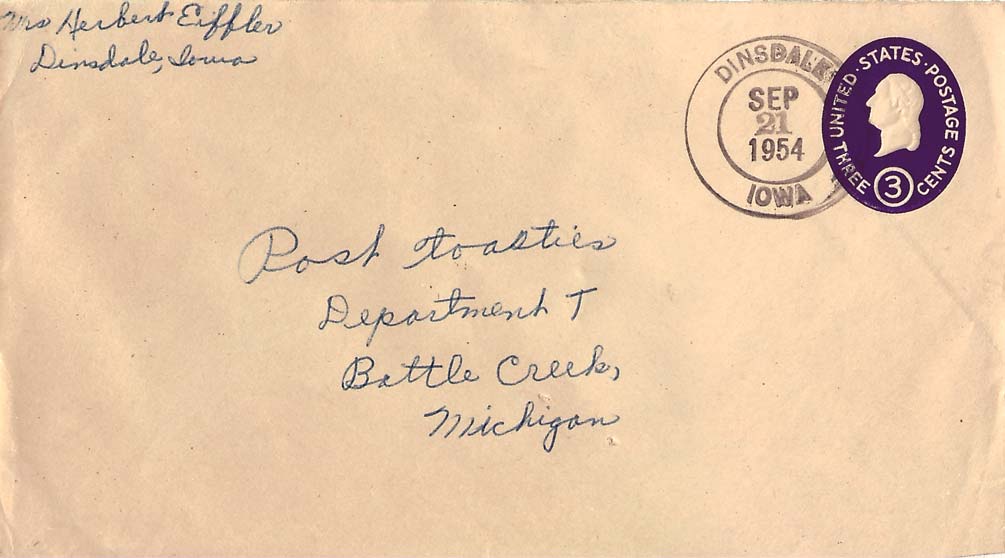 Mrs Herbert Eiffler
Dinsdale, Iowa
DINSDALE
SEP
21
1954
IOWA
UNITED · STATES · POSTAGE
THREE 3 CENTS
Post Toasties
Department T
Battle Creek,
Michigan